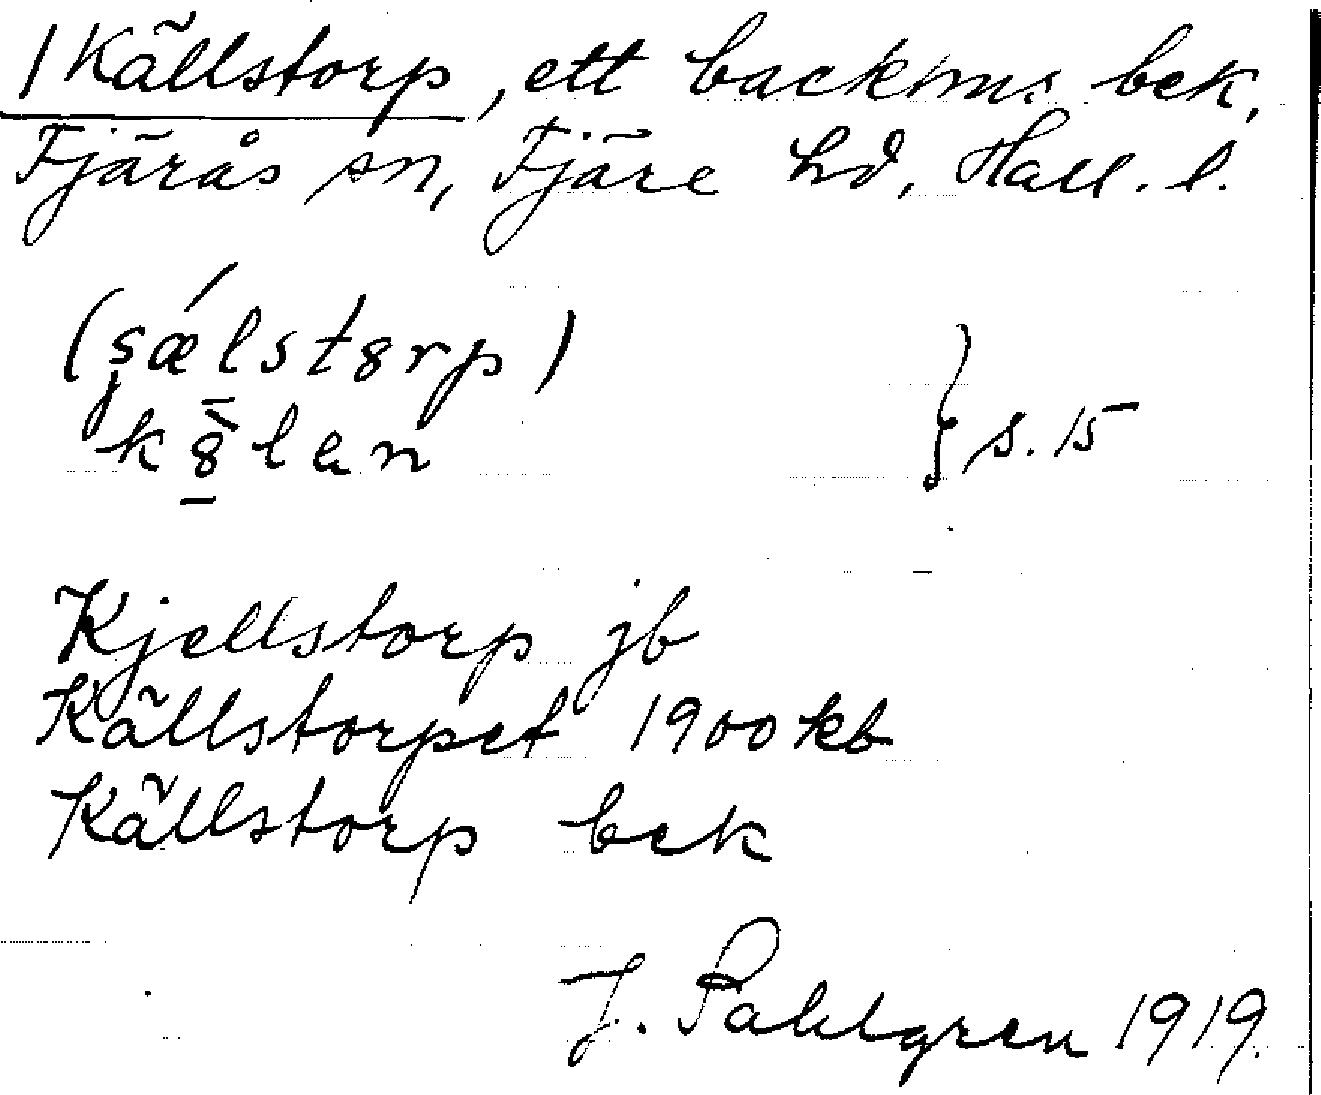 1 Källstorp, ett backhus bek.
Fjärås sn, Fjäre hd, Hall. l.
(sǽlstorp)
k8̀lan } s. 15
Kjellstorp jb
Källstorpet 1900 kb
Källstorp bek
J. Pahlgren 1919.